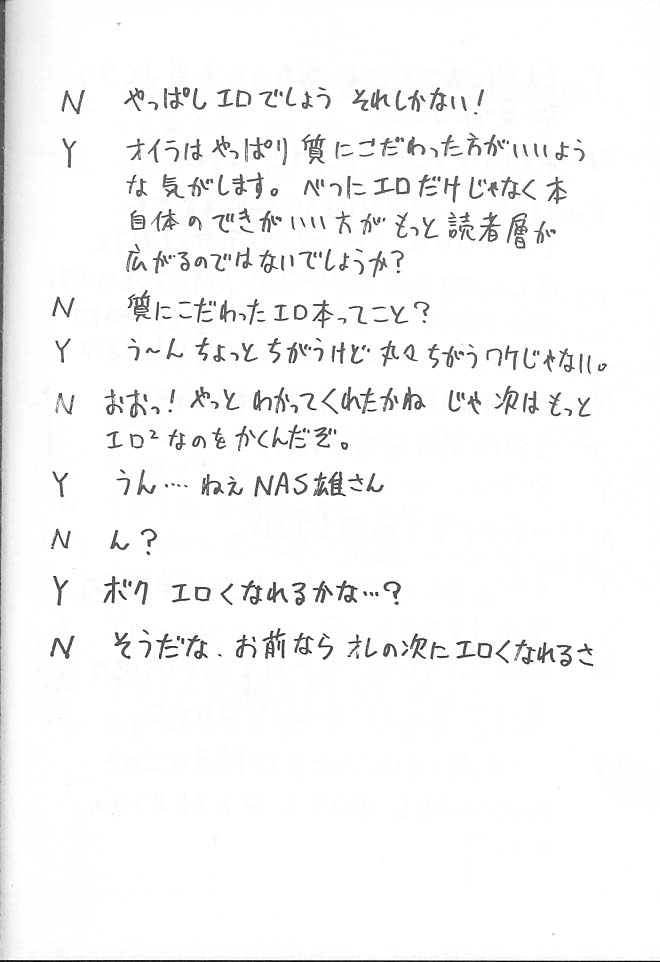 N やっぱしエロでしょう それしかない!
Y オイラは やっぱり 質にこだわった方がいいよう
な気がします。べつにエロだけじゃなく本
自体のできがいい方がもっと読者層が
広がるのではないでしょうか?
N 質にこだわったエロ本ってこと?
Y う〜ん ちょっと ちがうけど 丸々ちがうワケじゃない。
N おおっ! やっと わかってくれたかね じゃ 次は もっと
エロ²なのをかくんだぞ。
Y うん…‥ ねぇ NAS雄さん
N ん?
Y ボク エロくなれるかな…?
N そうだな、お前なら オレの次にエロくなれるさ